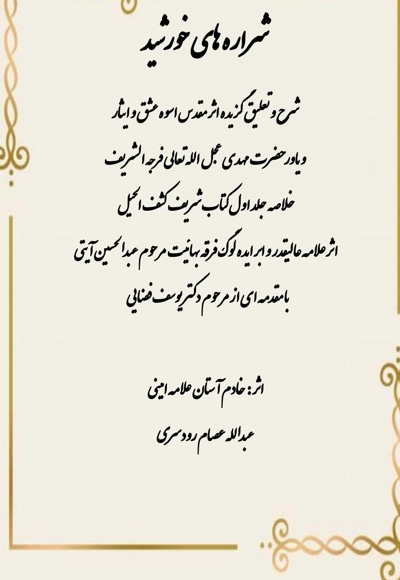 شراره های خورشید
شرح و تعلیق گزیده اثر مقدس اسوه عشق و ایثار
و یاور حضرت مهدی عجل الله تعالی فرجه الشریف
خلاصه جلد اول کتاب شریف کشف الحیل
اثر علامه عالیقدر و ابر ایده لوگ فرقه بهائیت مرحوم عبدالحسین آیتی
با مقدمه ای از مرحوم دکتر یوسف فضایی
اثر: خادم آستان علامه امینی
عبدالله عصام رودسری